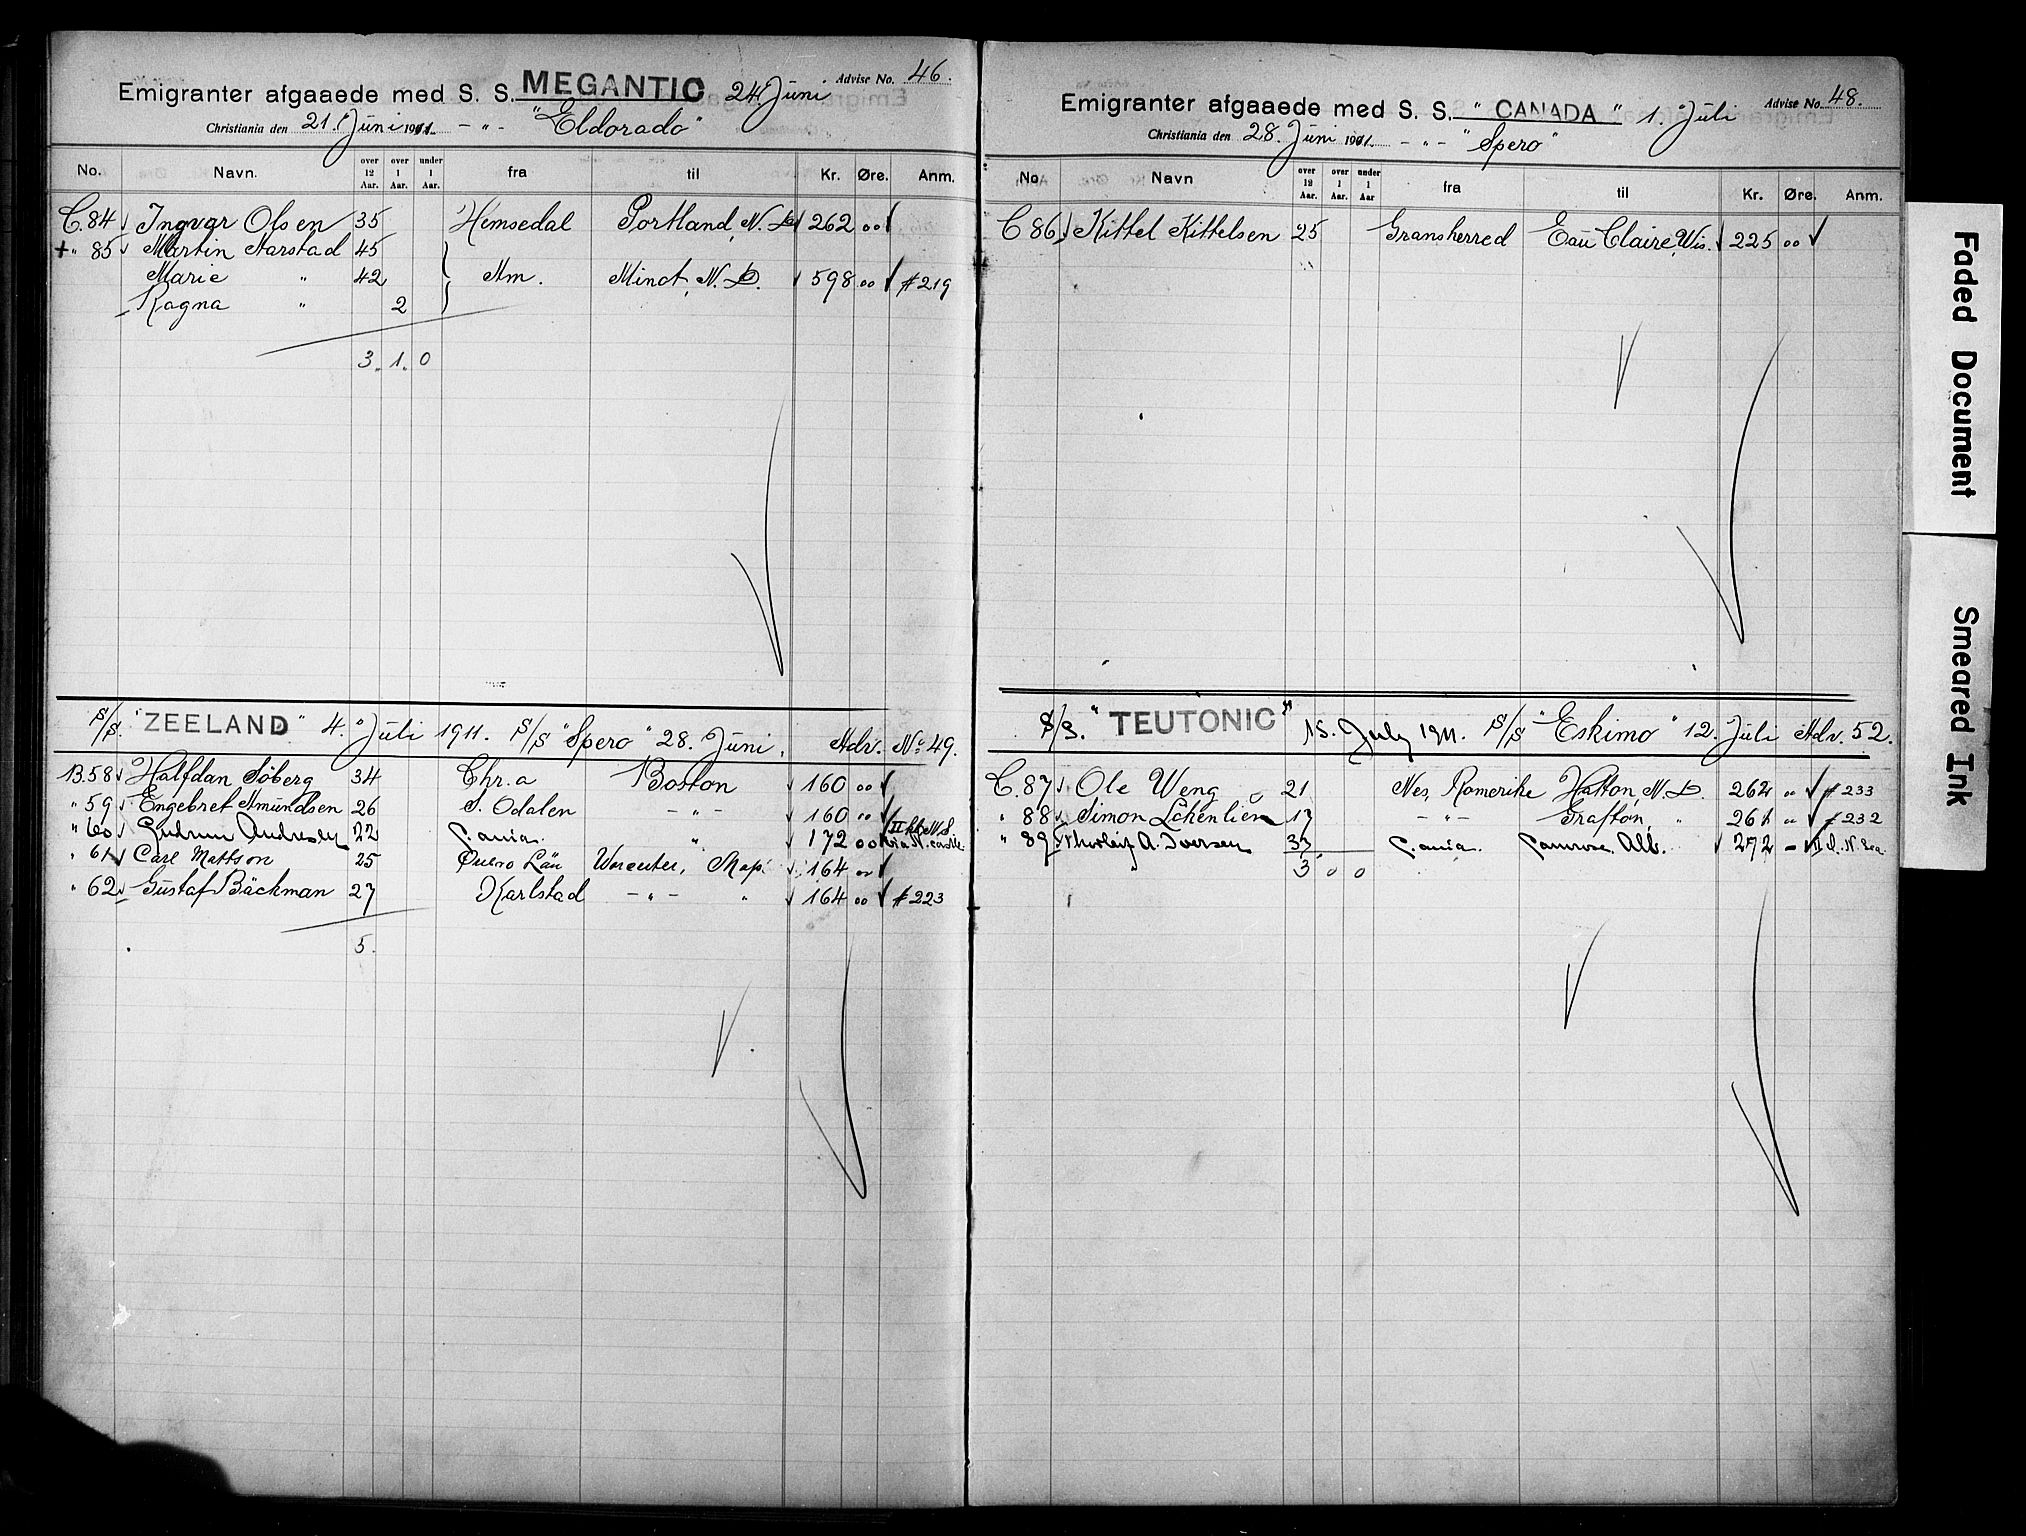 Advise No. 46.
Emigranter afgaaede med S. S. MEGANTIC 24 Juni
Christiania den 21. Juni 1911. - " - "Eldorado"
No. Navn. over 12 Aar. over 1 Aar. under 1 Aar. fra til Kr. Øre. Anm.
C. 84 Ingvar Olsen 35 Hemsedal Portland, N. Da 262 00
+ " 85 Martin Aarstad 45
Marie " 42 Am. Minot, N. D. 598 00 #219
Ragna " 2
3. 1. 0
S/S. "ZEELAND" 4. Juli 1911. S/S "Spero" 28. Juni. Adv. No 49.
B.58 Halfdan Söberg 34 Chr.a Boston 160 00
" 59 Engebret Amundsen 26 S. Odalen - " - 160 "
" 60 Gudrun Andresen 22 " 172 00
" 61 Carl Mattson 25 Län 164 00
" 62 Gustaf Bäckman 27 Karlstad - " - " 164 00 #223
5.
Advise No. 48.
Emigranter afgaaede med S. S. "CANADA" 1. Juli
Christiania den 28. Juni 1911. - " - "Spero"
No Navn over 12 Aar. over 1 Aar. under 1 Aar fra til Kr. Øre. Anm.
C 86 Kittel Kittelsen 25 Gransherred Eau Claire, Wis. 225 00
S/S. "TEUTONIC" 15. July 1911. S/S "Eskimo" 12. Juli Adv. 52.
C. 87 Ole Weng 21 Nes, Romerike Hatton, N. D. 262 " #233
" 88 Simon 17 - " - Grafton, " 261 " #232
" 89 Thorleif A. Iversen 33 Camrose Alb. 272 -
3 0 0
Faded Document
Smeared Ink